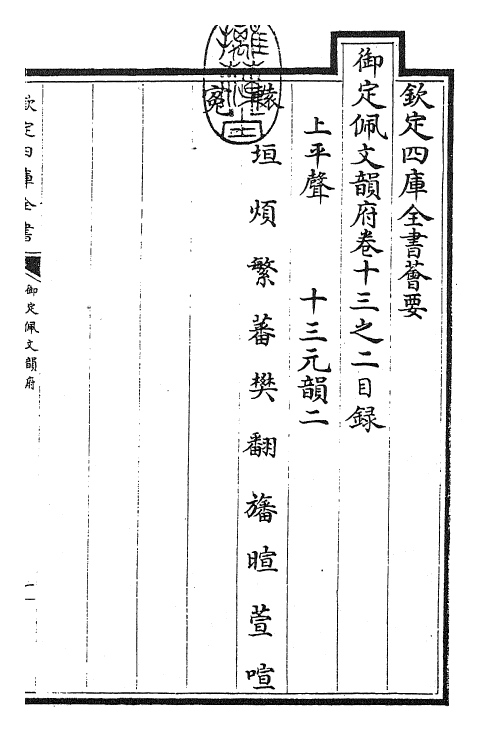 欽定四庫全書薈要
御定佩文韻府卷十三之二目錄
上平聲 十三元韻二
轅 垣 煩 繁 蕃 樊 翻 旛 暄 萱 喧
冤
欽定四庫全書
御定佩文韻府
一